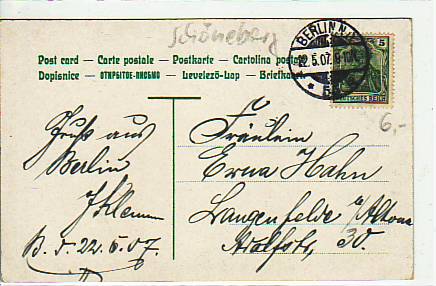 Schöneberg
Post card — Carte postale — Postkarte — Cartolina postale
Dopisnice — ОТКРЫТОЕ-ПИСЬМО — Levelező-Lap — Briefkaart
BERLIN N.
22.5.07. 9-10
* 5
5
DEUTSCHES REICH
6,-
Gruß aus
Berlin
B. d. 22.5.07.
Fräulein
Erna Hahn
Langenfelde b/Altona
Adolfstr. 30.